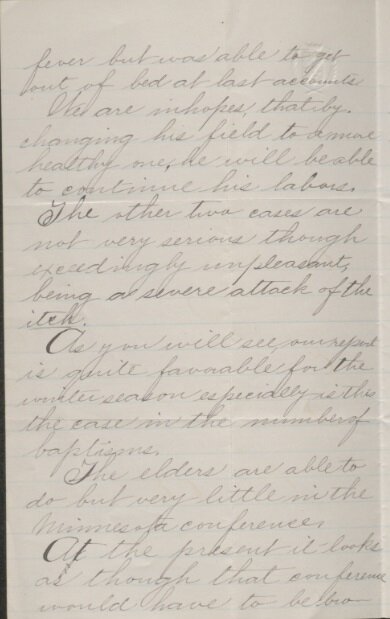 fever but was able to get
out of bed at last accounts
We are in hopes, that by
changing his field to a more
healthy one, he will be able
to continue his labors.
The other two cases are
not very serious though
exceedingly unpleasant,
being a severe attack of the
itch.
As you will see, our report
is quite favorable for the
winter season especially is this
the case in the number of
baptisms.
The elders are able to
do but very little in the
Minnesota conference.
At the present it looks
as though that conference
would have to be bro-